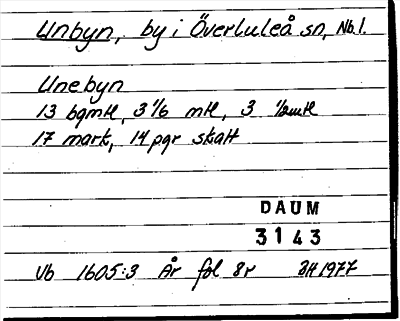 Unbyn, by i Överluleå sn, Nb.l.
Unebyn
13 bgmtl, 3 1/6 mtl, 3 1/2mtl
17 mark, 14 pgr skatt
DAUM
3143
Vb 1605:3 År fol 8r BH 1977